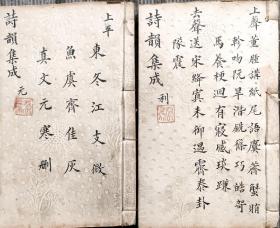 上平
東冬江支微
魚虞齊佳灰
真文元寒刪
詩韻集成 元
上聲 董腫講紙尾語麌薺蟹賄
軫吻阮旱潸銑篠巧皓哿
馬養梗迥有寢感琰豏
去聲 送宋絳寘未御遇霽泰卦
隊震
詩韻集成 利